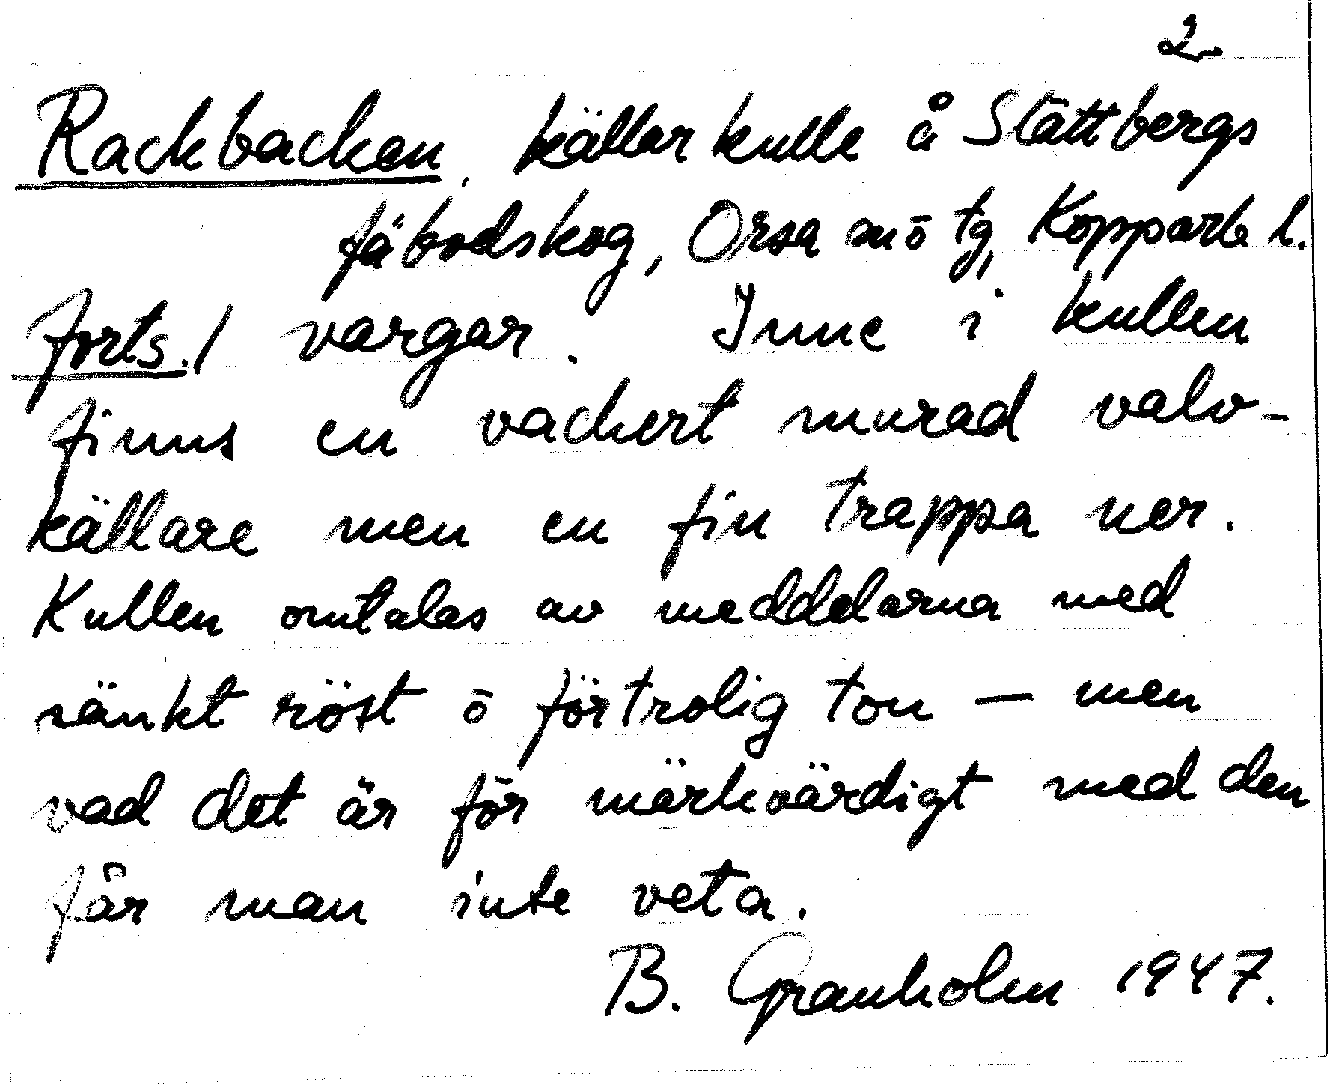 2
Rackbacken, källarkulle å Stättbergs
fäbodskog, Orsa sn ö tg, Kopparb l.
Forts./ vargar. Inne i kullen
finns en vackert murad valv-
källare men en fin trappa ner.
Kullen omtalas av meddelarna med
sänkt röst ō förtrolig ton — men
vad det är för märkvärdigt med den
får man inte veta.
B. Granholm 1947.